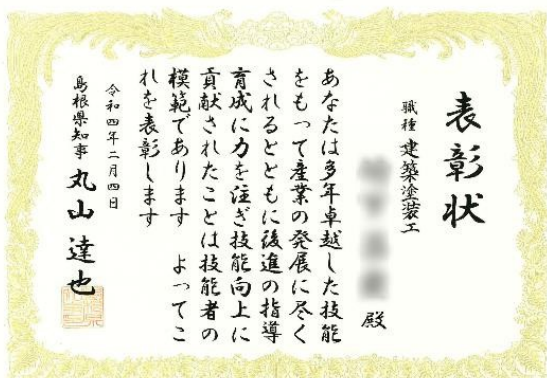 表彰状
職種 建築塗装工
殿
あなたは多年卓越した技能
をもって産業の発展に尽く
されるとともに後進の指導
育成に力を注ぎ技能向上に
貢献されたことは技能者の
模範であります よってこ
れを表彰します
令和四年二月四日
島根県知事 丸山達也